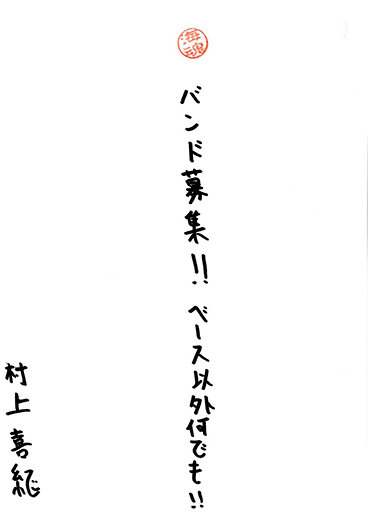 海魂
バンド募集!! ベース以外何でも!!
村上喜紀